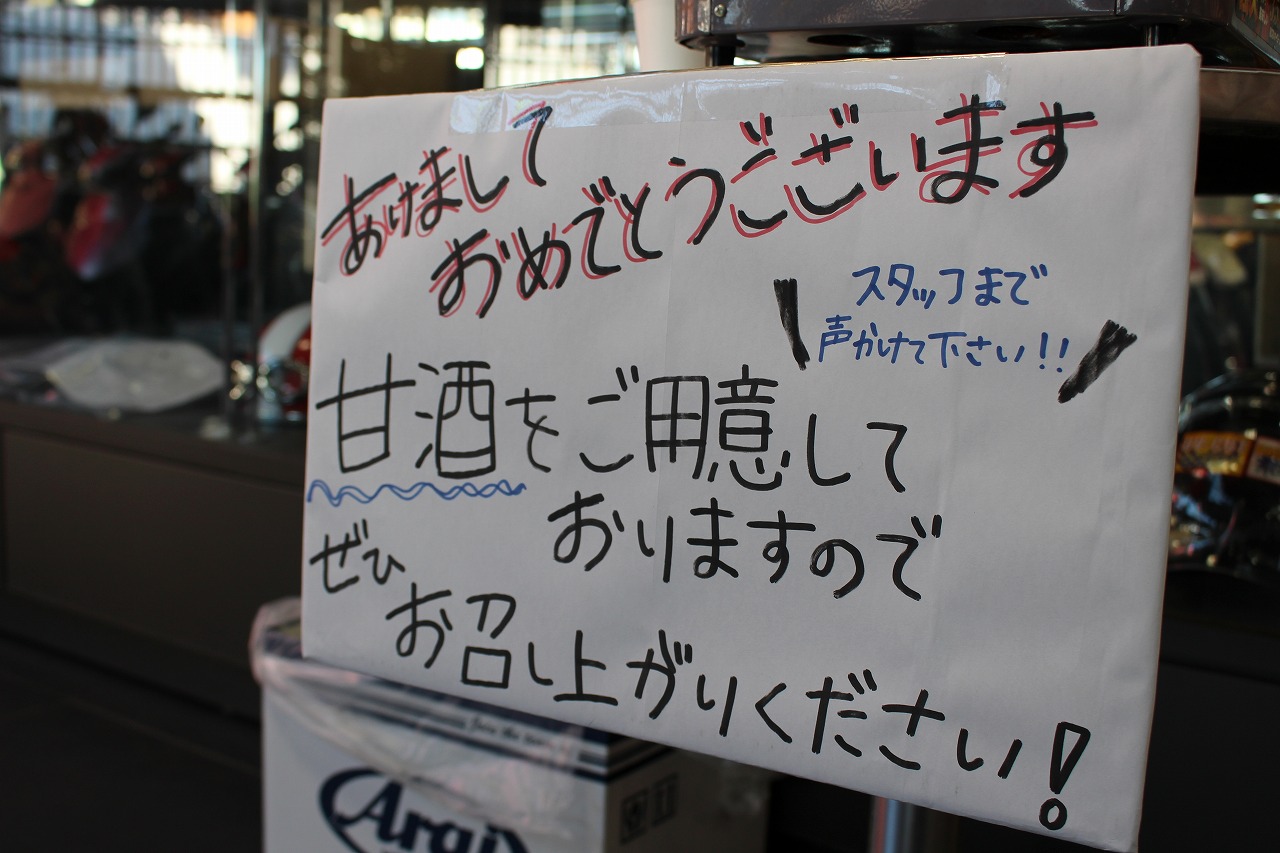 あけまして
おめでとうございます
スタッフまで
声かけて下さい!!
甘酒をご用意して
おりますので
ぜひ
お召し上がりください!
Arai